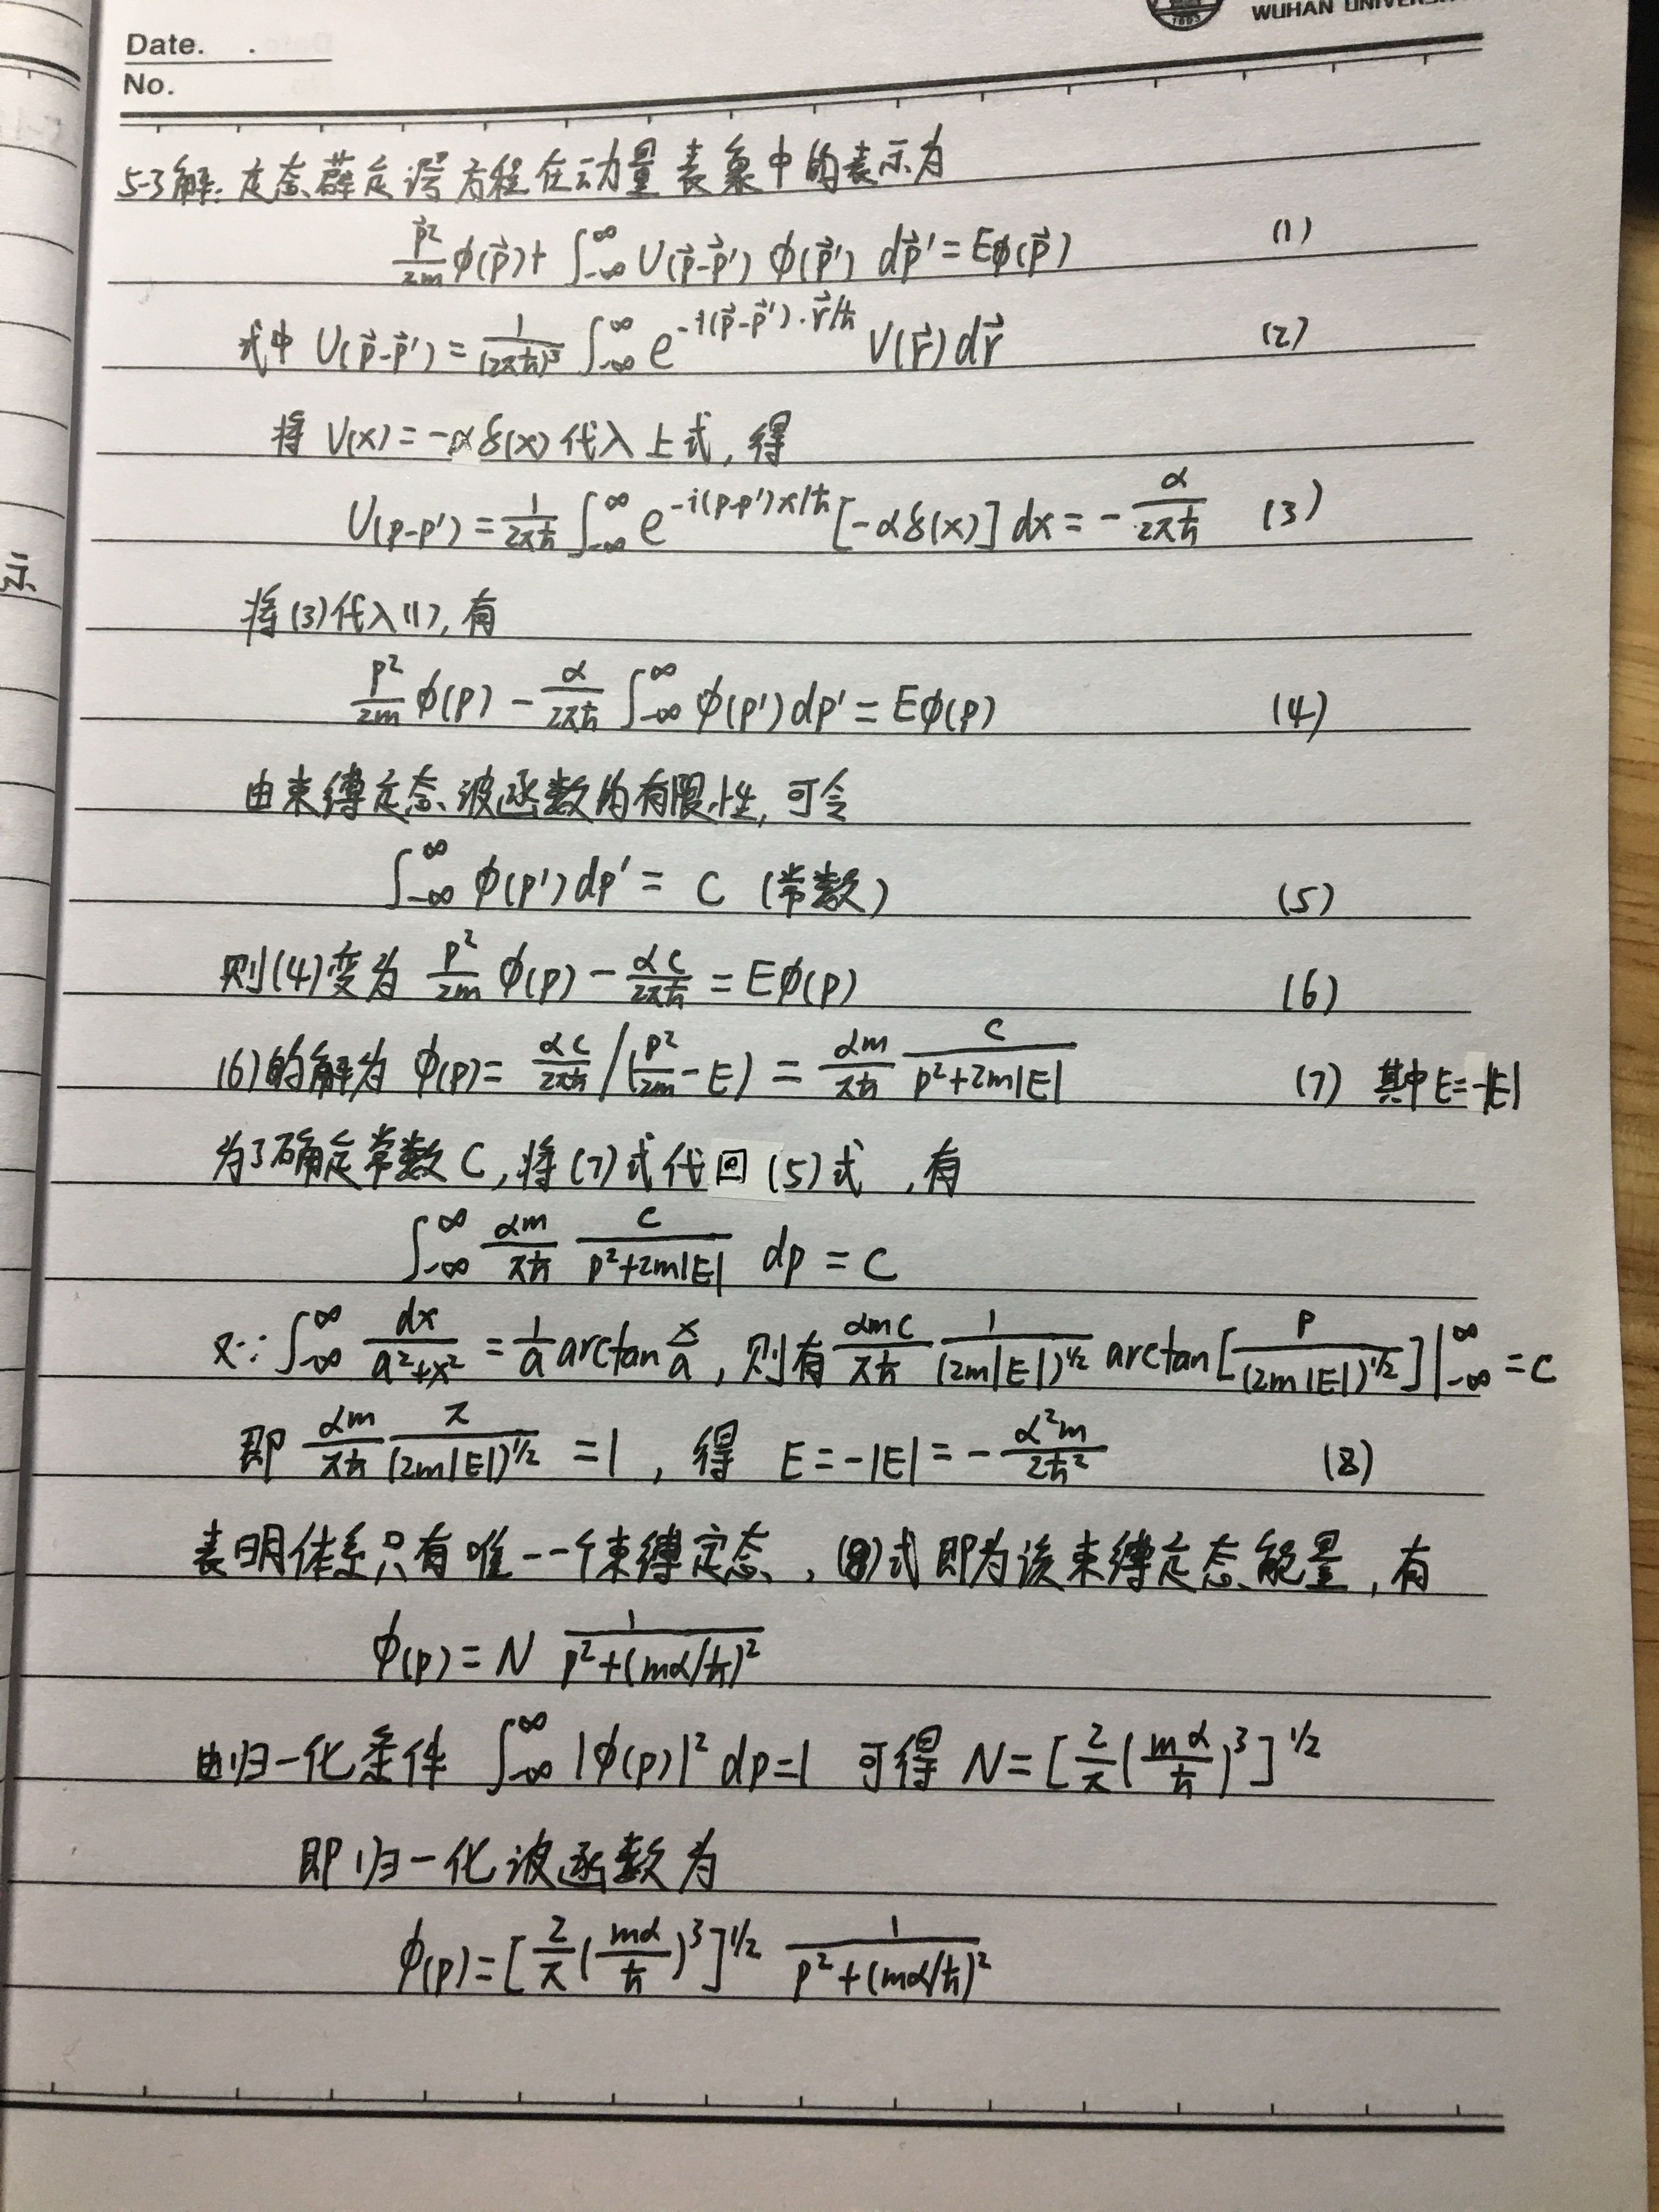 WUHAN UNIVERS
Date. .
No.
5-3解:定态薛定谔方程在动量表象中的表示为
p⃗²/2m ϕ(p⃗)+ ∫_{-∞}^{∞} U(p⃗-p⃗′) ϕ(p⃗′) dp⃗′ = Eϕ(p⃗) (1)
式中 U(p⃗-p⃗′) = 1/(2πħ)³ ∫_{-∞}^{∞} e^{-i(p⃗-p⃗′)·r⃗/ħ} V(r⃗) dr⃗ (2)
将 V(x) = -αδ(x) 代入上式, 得
U(p-p′) = 1/2πħ ∫_{-∞}^{∞} e^{-i(p-p′)x/ħ} [-αδ(x)] dx = - α/2πħ (3)
将(3)代入(1), 有
p²/2m ϕ(p) - α/2πħ ∫_{-∞}^{∞} ϕ(p′) dp′ = Eϕ(p) (4)
由束缚定态波函数的有限性, 可令
∫_{-∞}^{∞} ϕ(p′) dp′ = C (常数) (5)
则(4)变为 p²/2m ϕ(p) - αC/2πħ = Eϕ(p) (6)
(6)的解为 ϕ(p) = αC/2πħ /(p²/2m - E) = αm/πħ C/(p²+2m|E|) (7) 其中E=-|E|
为了确定常数C, 将(7)式代回(5)式, 有
∫_{-∞}^{∞} αm/πħ C/(p²+2m|E|) dp = C
又∵ ∫_{-∞}^{∞} dx/(a²+x²) = 1/a arctan x/a, 则有 αmC/πħ 1/(2m|E|)^{1/2} arctan[p/(2m|E|)^{1/2}]|_{-∞}^{∞} = C
即 αm/πħ π/(2m|E|)^{1/2} = 1, 得 E = -|E| = - α²m/2ħ² (8)
表明体系只有唯一一个束缚定态, (8)式即为该束缚定态能量, 有
ϕ(p) = N 1/(p²+(mα/ħ)²)
由归一化条件 ∫_{-∞}^{∞} |ϕ(p)|² dp=1 可得 N = [2/π (mα/ħ)³]^{1/2}
即归一化波函数为
ϕ(p) = [2/π (mα/ħ)³]^{1/2} 1/(p²+(mα/ħ)²)
示